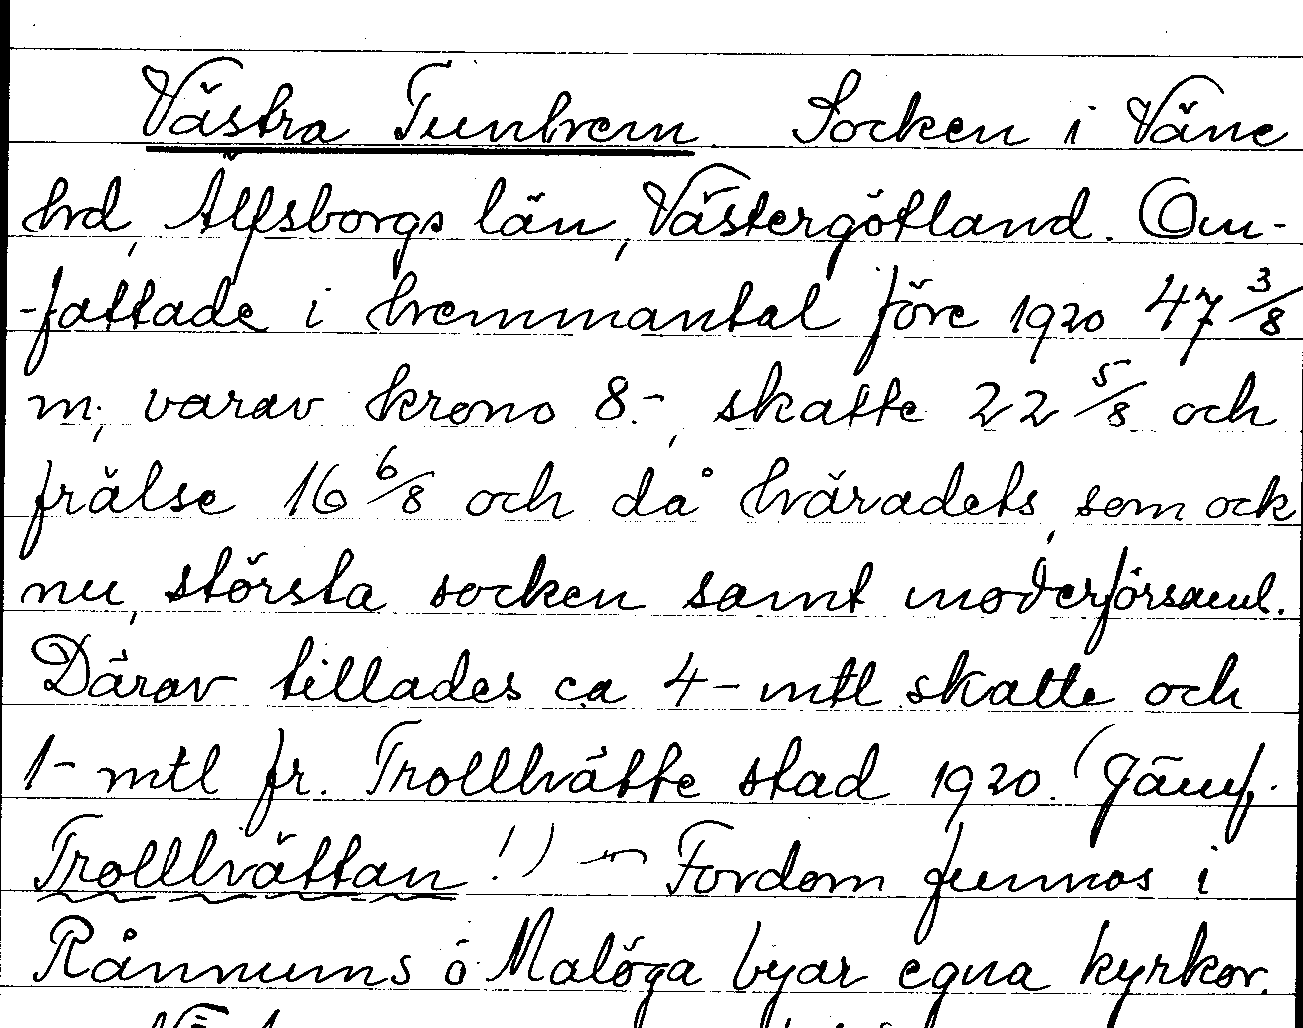 Västra Tunhem. Socken i Väne
hrd, Älfsborgs län, Västergötland. Om-
-fattade i hemmantal före 1920 47 3/8
m., varav krono 8.-, skatte 22 5/8 och
frälse 16 6/8 och då häradets, som ock
nu, största socken samt moderförsaml.
Därav tillades ca 4- mtl skatte och
1- mtl fr. Trollhätte stad 1920. (Jämf.
Trollhättan!) - Fordom funnos i
Rånnums o Malöga byar egna kyrkor.